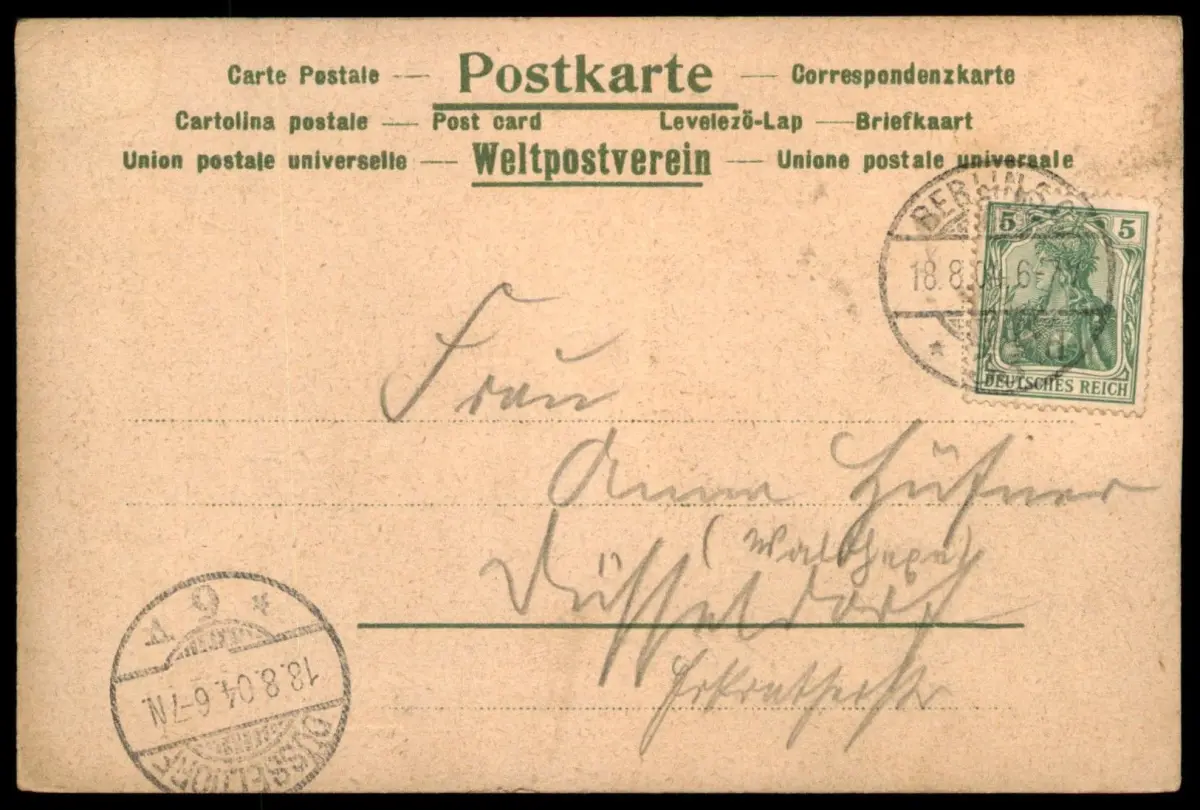 Carte Postale — Postkarte — Correspondenzkarte
Cartolina postale — Post card Levelezö-Lap — Briefkaart
Union postale universelle — Weltpostverein — Unione postale universale
BERLIN S.
18.8.04. 6-7N
5 5
DEUTSCHES REICH
Frau
Anna Hüfner
Düsseldorf
DÜSSELDORF
18.8.04. 6-7N.